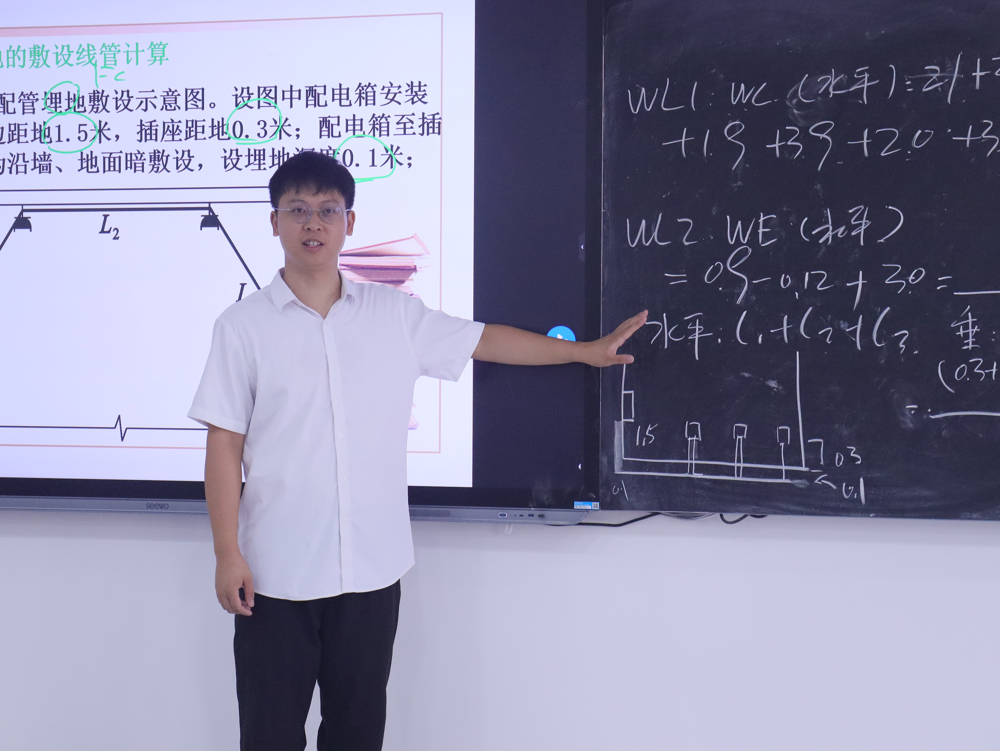 的敷设线管计算
FC
配管埋地敷设示意图。设图中配电箱安装
边距地1.5米，插座距地0.3米；配电箱至插
沿墙、地面暗敷设，设埋地深度0.1米；
L₂
L
seewo
WL1. WC (水平)=21+
+1.9 +3.9 +2.0 +3
WL2. WE (水平)
= 0.9-0.12 + 3.0 =
水平: L₁+L₂+L₃. 垂:
(0.3+
1.5
0.3
0.1
0.1